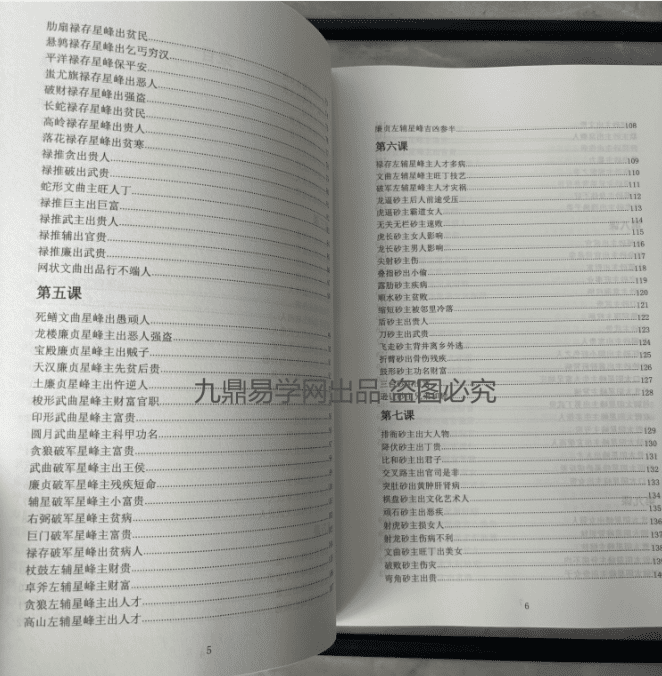 肋扇禄存星峰出贫民
悬鹑禄存星峰出乞丐穷汉
平洋禄存星峰保平安
蚩尤旗禄存星峰出恶人
破财禄存星峰出强盗
长蛇禄存星峰出贫民
高岭禄存星峰出贵人
落花禄存星峰出贫寒
禄推贪出贵人
禄推破出武贵
蛇形文曲主旺人丁
禄推巨主出巨富
禄推武主出贵人
禄推辅出官贵
禄推廉出武贵
网状文曲出品行不端人
第五课
死鳝文曲星峰出愚顽人
龙楼廉贞星峰主出恶人强盗
宝殿廉贞星峰主出贼子
天汉廉贞星峰主先贫后贵
土廉贞星峰主出忤逆人
梭形武曲星峰主财富官职
印形武曲星峰主富贵
圆月武曲星峰主科甲功名
贪狼破军星峰主富贵
武曲破军星峰主出王侯
廉贞破军星峰主残疾短命
辅星破军星峰主小富贵
右弼破军星峰主贫病
巨门破军星峰主富贵
禄存破军星峰出贫病人
杖鼓左辅星峰主财贵
卓斧左辅星峰主财富
贪狼左辅星峰主出人才
高山左辅星峰主出人才
5
廉贞左辅星峰吉凶参半 108
第六课
禄存左辅星峰主人才多病 109
文曲左辅星峰主旺丁技艺 110
破军左辅星峰主人才灾祸 111
龙逼砂主后人前途受压 112
虎逼砂主霸道女人 113
无关无栏砂主速败 114
虎长砂主女人影响 115
龙长砂主男人影响 116
尖射砂主伤 117
叠指砂出小偷 118
露肋砂主疾病 119
顺水砂主贫败 120
缩短砂主被邻里冷落 121
后砂主出贵人 122
刀砂主出武贵 123
飞走砂主背井离乡外逃 124
折臂砂出骨伤残疾 125
鼓形砂主功名财富 126
127
128
第七课
排衙砂主出大人物 129
降伏砂主出丁贵 130
比和砂主出君子 131
交叉路主出官司是非 132
突肚砂出黄肿肝肾病 133
棋盘砂主出文化艺术人 134
顽石砂主出恶疾 135
射虎砂主损女人 136
射龙砂主伤病不利 137
文曲砂主旺丁出美女 138
破败砂主伤灾
弯角砂主出贵
6
九鼎易学网出品 盗图必究